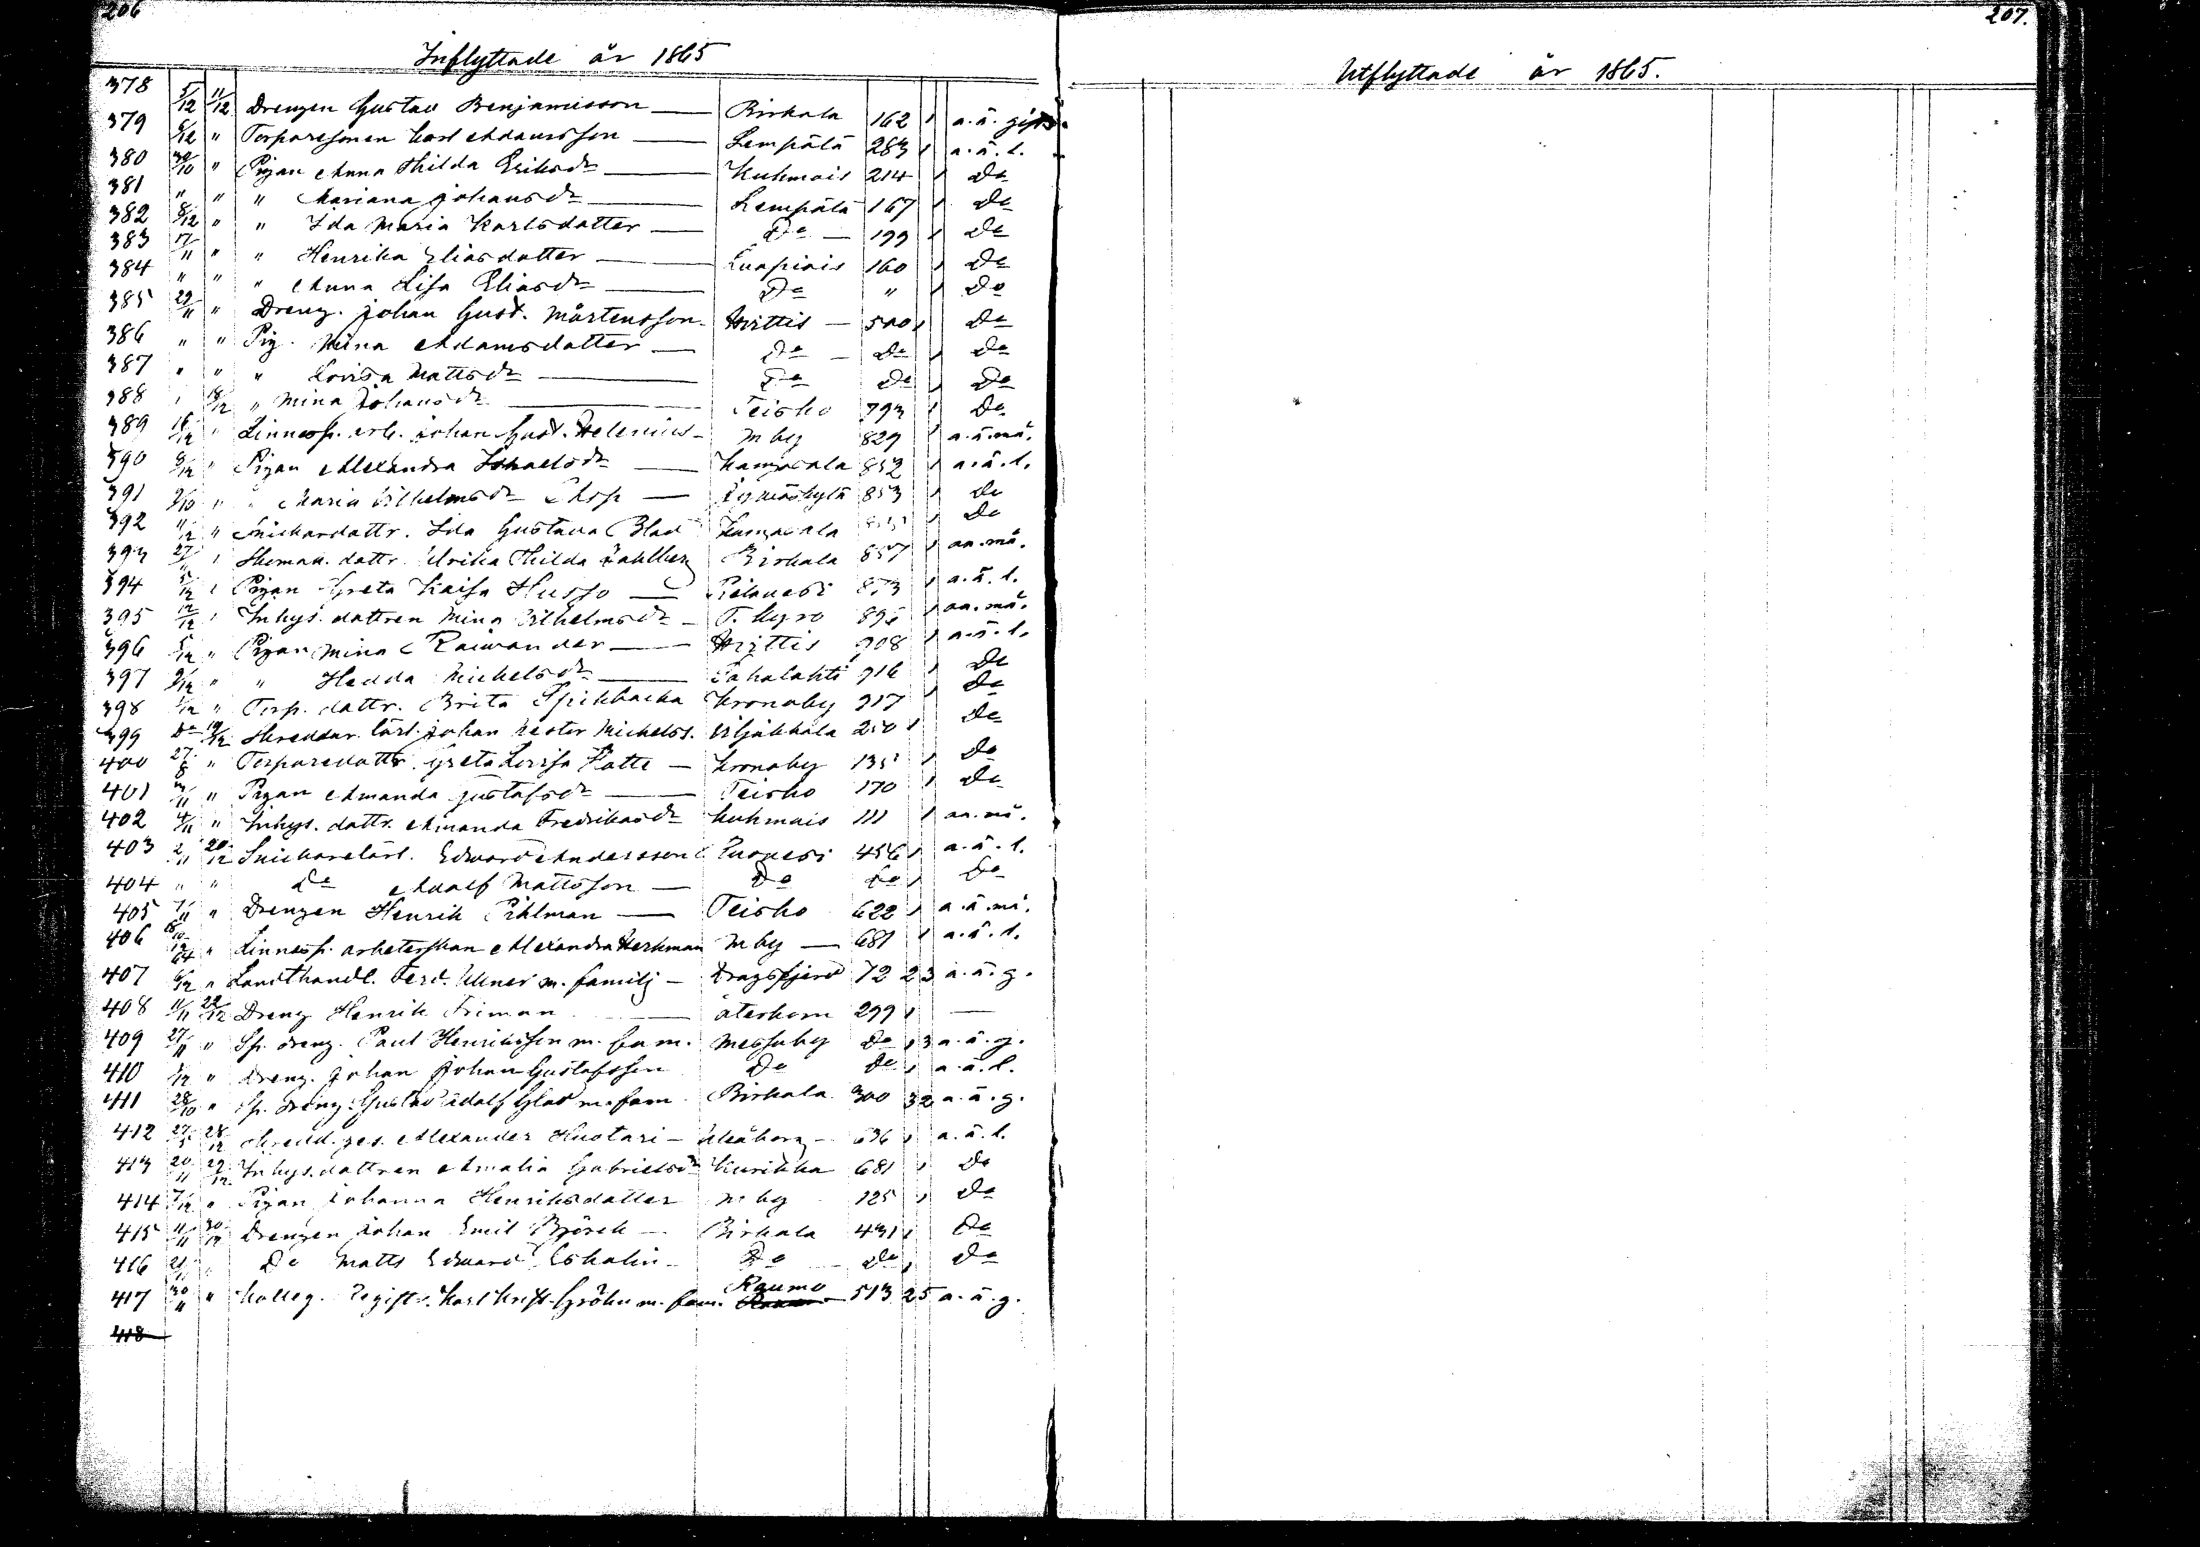 206
Inflyttade år 1865
378 5/12 11/12 Drengen Gustav Benjamisson — Birkala 162 1 a.ä. gift
379 6/12 " Torparesonen Karl Adamsson — Lempälä 283 1 a.ä.l.
380 30/10 " Pigan Anna Hilda Eriksdr — Kuhmois 214 1 Do
381 " " " Mariana Johansdr — Lempälä 167 1 Do
382 8/12 " " Ida Maria Karlsdatter — Do — 199 1 Do
383 17/11 " " Henrika Eliasdatter — Luopiois 160 1 Do
384 " " " Anna Lisa Eliasdr — Do " 1 Do
385 29/11 " Dreng. Johan Gust. Mårtensson — Hvittis — 500 1 Do
386 " " Pig. Mina Adamsdatter — Do — Do 1 Do
387 " " " Lovisa Mattsdr — Do Do 1 Do
388 " 18/12 " Mina Johansdr — Teisko 793 1 Do
389 14/12 " Linnesp. arb. Johan Gust. Helenius — M by 829 1 a.ä.må.
390 9/12 " Pigan Alexandra Isaksdr — Kangasala 852 1 a.ä.l.
391 " " Maria Vilhelmsdr Ekop — 853 1 Do
392 11/12 " Snickardattr. Ida Gustava Blad Kangasala 1 Do
393 27/11 " dattr. Ulrika Hilda Birkala 857 1 aa.må.
394 5/12 " Pigan Greta Kaisa Husso — Pielavesi 873 1 a.ä.l.
395 12/12 " Inhys. dattren Mina Vilhelmsdr — T. kyro 1 aa.må.
396 5/12 " Pigan Mina Raiwander — Hvittis 908 1 a.ä.l.
397 9/12 " " Hedda Michelsdr — Sahalahti 916 1 Do
398 " Torp. dattr. Brita Spikbacka Kronoby 917 1 Do
399 Do 19/12 Skreddar. lärl. Johan Nestor Michelss. Viljakkala 250 1 Do
400 27/8 " Torparedattr. Greta Lovisa Katte — Kronoby 135 1 Do
401 " Pigan Amanda Gustafsdr — Teisko 170 1 Do
402 4/11 " Inhys. dattr. Amanda Fredriksdr Kuhmois 111 1 aa.må.
403 2/11 20/12 Snickarelärl. Edward Andersson Ruovesi 456 1 a.ä.l.
404 " " Do Adolf Mattsson — Do Do 1 Do
405 7/11 " Drengen Henrik Pihlman — Teisko 622 1 a.ä.må.
406 " Linnesp. arbeterskan Alexandra Herkman M by — 681 1 a.ä.l.
407 6/12 " Landthandl. Ferd. Ullner m. familj — Dragsfjerd 72 2 3 a.ä.g.
408 11/11 22/12 Dreng Henrik Friman — återkom 299 1 —
409 27/11 " Sp. dreng. Paul Henriksson m. fam. Messuby Do 1 3 a.ä.g.
410 " Dreng. Johan Johan Gustafsson Do Do 1 a.ä.l.
411 28/10 " Sp. dreng. Gustav Adolf Glad m. fam. Birkala 300 3 2 a.ä.g.
412 28/12 Skredd. ges. Alexander Kuotari — Uleåborg — 636 1 a.ä.l.
413 20/11 29/12 Inhys. dattren Amalia Gabrielsdr Kurikka 681 1 Do
414 7/12 " Pigan Johanna Henriksdatter M by 125 1 Do
415 11/11 30/12 Drengen Johan Emil Björck — Birkala 431 1 Do
416 " Do Matts Edward Eskolin — Do Do 1 Do
417 30/11 " Kolleg. Regist. Karl Krist. Gröhn m. fam. Raumo 513 2 5 a.ä.g.
418
207.
Utflyttade år 1865.